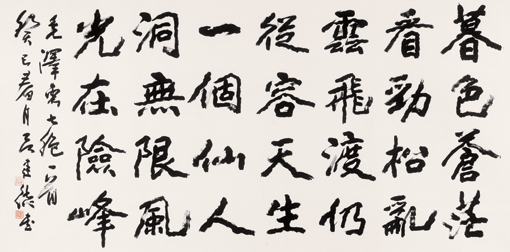 暮色蒼茫
看勁松亂
雲飛渡仍
從容天生
一個仙人
洞無限風
光在險峰
毛澤東七絕一首
癸巳春月